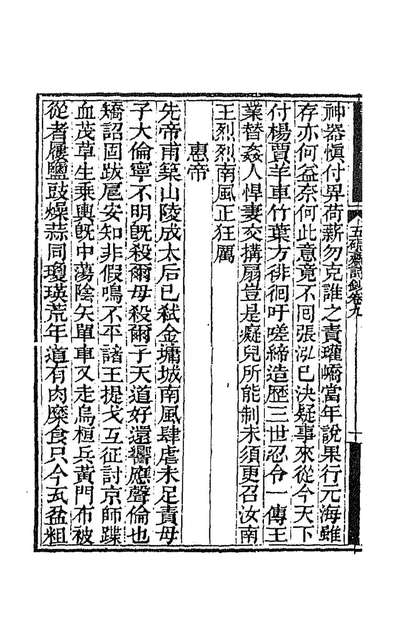 神器慎付畀荷薪勿克誰之責瓘嶠當年說果行元海雖
存亦何益奈何此意竟不回張泓已決疑事來從今天下
付楊賈羊車竹葉方徘徊吁嗟締造歷三世忍令一傳王
業替姦人悍妻交搆扇豈是癡兒所能制未須更召汝南
王烈烈南風正狂厲
惠帝
先帝甫築山陵成太后已弒金墉城南風肆虐未足責母
子大倫寧不明旣殺爾母殺爾子天道好還響應聲倫也
矯詔固跋扈安知非假鳴不平諸王提戈互征討京師蹀
血茂草生乘輿旣中蕩陰矢單車又走烏桓兵黃門布被
從者屨鹽豉燥蒜同瓊瑛荒年道有肉糜食只今瓦盆粗
五硏齋詩鈔卷九